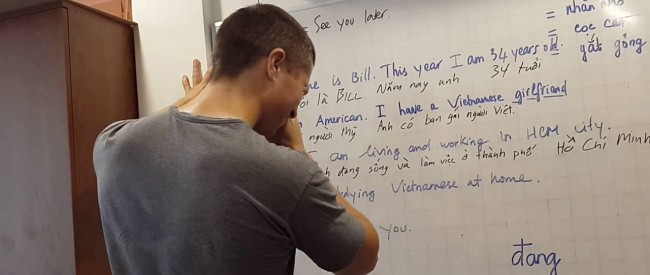 - See you later.
= nhăn nhó
= cọc cằn
gắt gỏng
is Bill. This year I am 34 years old.
là BILL. Năm nay anh 34 tuổi
American. I have a Vietnamese girlfriend
người Mỹ Anh có bạn gái người Việt.
am living and working in HCM city.
đang sống và làm việc ở thành phố Hồ Chí Minh
Vietnamese at home.
you.
đang